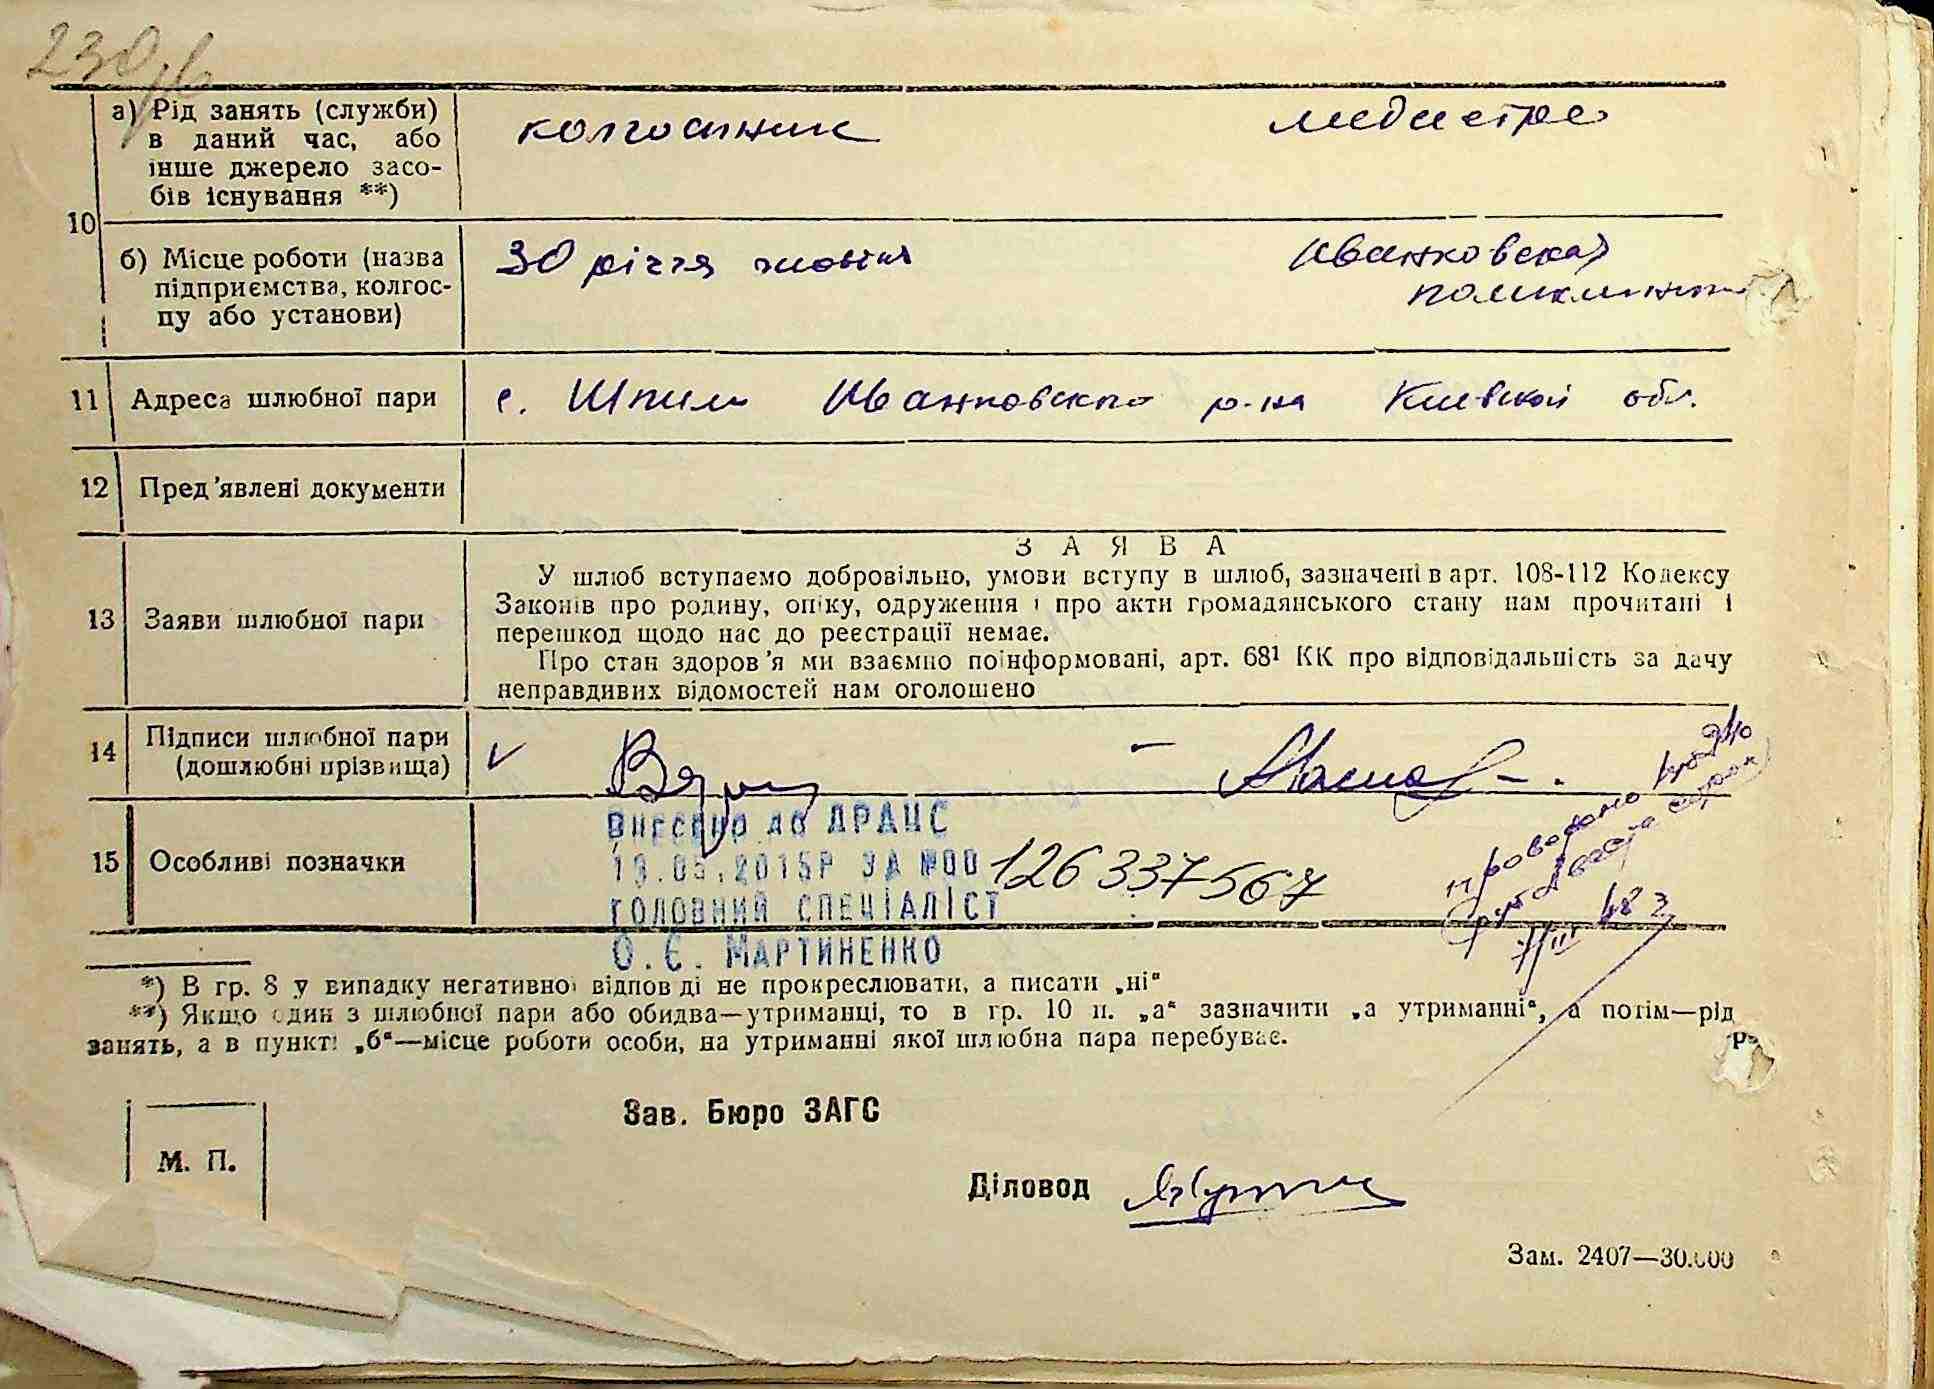 а) Рід занять (служби)
в даний час, або
інше джерело засо-
бів існування **)
колгоспник
медсестра
10
б) Місце роботи (назва
підприємства, колгос-
пу або установи)
30 річчя жовтня
Иванковская
поликлиника
11 Адреса шлюбної пари
с. Шпили Иванковского р-на Киевской обл.
12 Пред'явлені документи
ЗАЯВА
У шлюб вступаємо добровільно, умови вступу в шлюб, зазначені в арт. 108-112 Кодексу
Законів про родину, опіку, одруження і про акти громадянського стану нам прочитані і
перешкод щодо нас до реєстрації немає.
Про стан здоров'я ми взаємно поінформовані, арт. 68¹ КК про відповідальність за дачу
неправдивих відомостей нам оголошено
13 Заяви шлюбної пари
14 Підписи шлюбної пари
(дошлюбні прізвища)
15 Особливі позначки
Внесено до ДРАЦС
19.05.2015р за №00 126337567
головний спеціаліст
О.Є. Мартиненко
*) В гр. 8 у випадку негативної відповіді не прокреслювати, а писати „ні“
**) Якщо один з шлюбної пари або обидва—утриманці, то в гр. 10 п. „а“ зазначити „а утриманні“, а потім—рід
занять, а в пункті „б“—місце роботи особи, на утриманні якої шлюбна пара перебуває.
Зав. Бюро ЗАГС
М. П.
Діловод
Зам. 2407—30.000